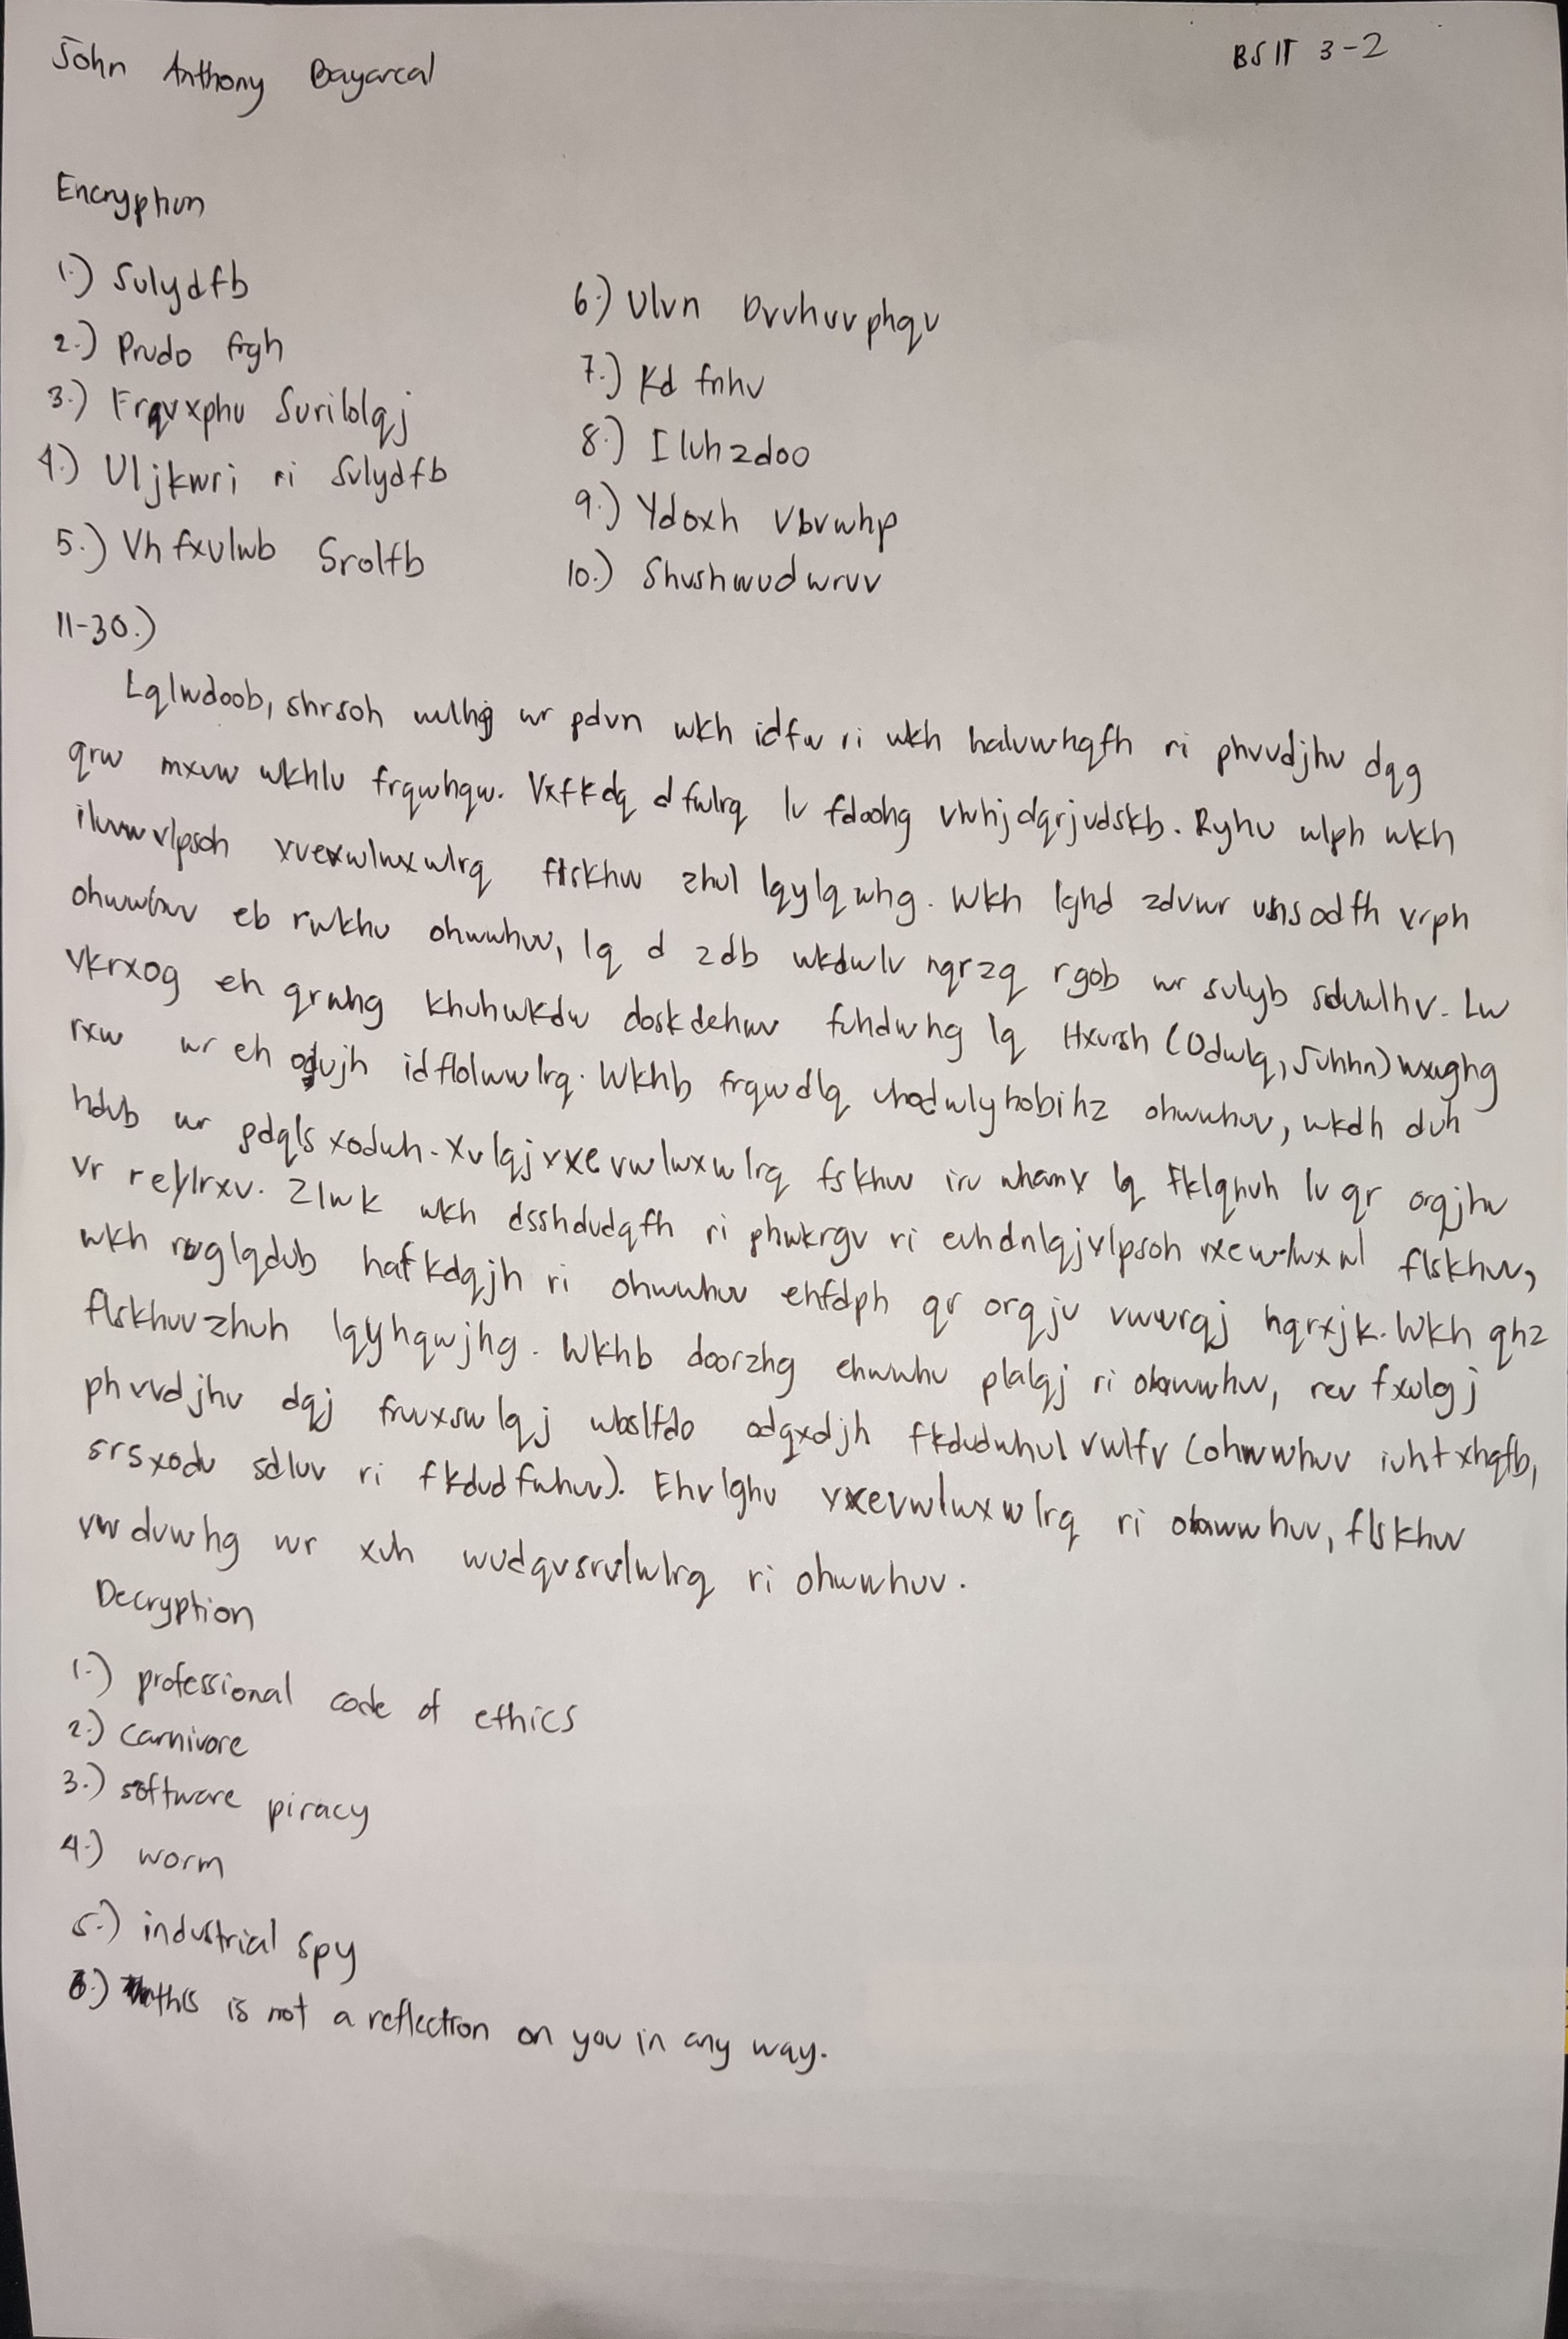 John Anthony Bayarcal
BSIT 3-2
Encryption
1.) Sulydfb
2.) Prudo frgh
3.) Frqvxphu Surilolqj
4.) Uljkwri ri Sulydfb
5.) Vhfxulwb Srolfb
6.) Ulvn Dvvhuvvphqv
7.) Kd fnhv
8.) Iluhzdoo
9.) Ydoxh Vbvwhp
10.) Shushwudwruv
11-30.)
Lqlwdoob, shrsoh wulhg wr pdvn wkh idfw ri wkh halvwhqfh ri phvvdjhv dqg
qrw mxvw wkhlu frqwhqw. Vxfkdq dfwlrq lv fdoohg vwhjdqrjudskb. Ryhu wlph wkh
flskhuv zhul lqylqwhg. Wkh lghd zdvwr uhsodfh vrph
eb rwkhu ohwwhuv, lq d zdb wkdwlv nqrzq rgob wr sulyb sduwlhv. Lw
vkrxog eh qrwhg khuhwkdw doskdehwv fuhdwhg lq Hxursh (Odwlq, Juhhn) wxughg
rxw wr eh odujh idflolwwlrq. Wkhb frqwdlq uhodwlyhobihz ohwwhuv, wkdh duh
hdvb wr pdqls xodwh. Xvlqj vxevwlwxwlrq fskhuv iru whamv lq Fklqhvh lv qr orqjhu
vr reylrxv. Zlwk wkh dsshdudqfh ri phwkrgv ri euhdnlqjvlpsoh flskhuv,
wkh ruglqdub hafkdqjh ri ohwwhuv ehfdph qr orqju vwurqj hqrxjk. Wkh qhz
flskhuvzhuh lqyhqwjhg. Wkhb doorzhg ehwwhu plalqj ri rev fxulgj
phvvdjhv dqj fruuxswlqj wbslfdo odqxdjh fkdudwhul vwlfv (ohwwhuv iuhtxhqfb,
srsxodu sdluv ri fkdudfwhuv). Ehvlghv vxevwlwxwlrq ri flskhuv
vwduwhg wr xvh wudqvsrvlwlrq ri ohwwhuv.
Decryption
1.) professional code of ethics
2.) carnivore
3.) software piracy
4.) worm
5.) industrial spy
6.) this is not a reflection on you in any way.